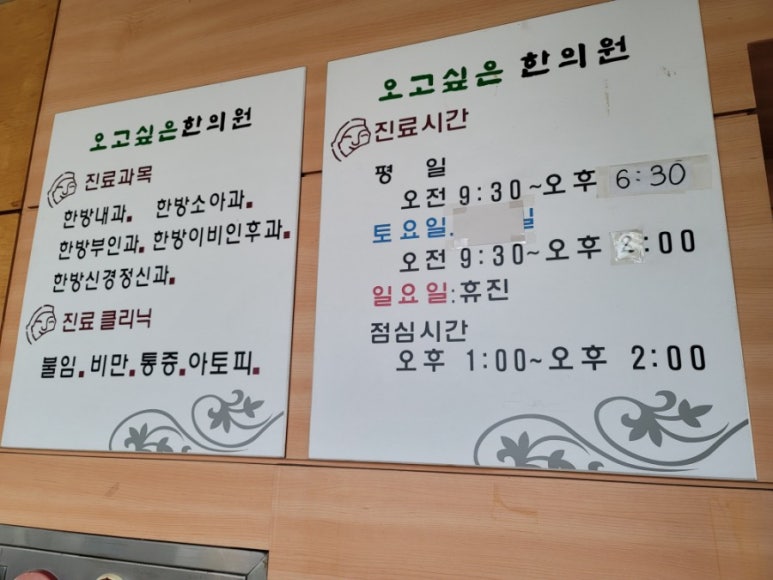 오고싶은한의원
진료과목
한방내과. 한방소아과.
한방부인과. 한방이비인후과.
한방신경정신과.
진료 클리닉
불임.비만.통증.아토피.
오고싶은 한의원
진료시간
평 일
오전 9:30~오후 6:30
토요일.
오전 9:30~오후 2:00
일요일:휴진
점심시간
오후 1:00~오후 2:00